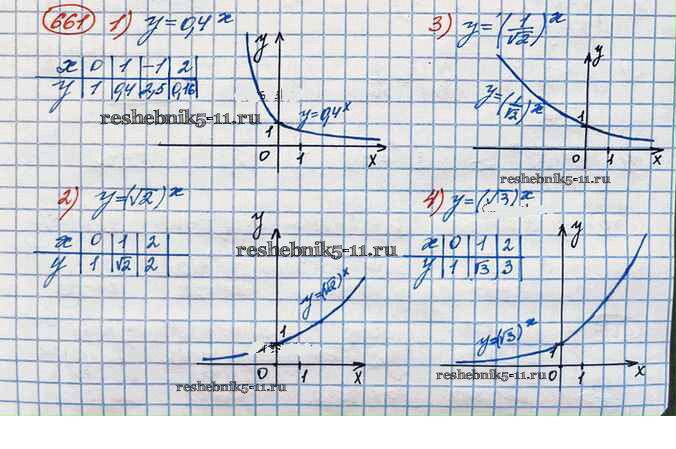 661 1) y=0,4^x
x 0 1 -1 2
y 1 0,4 2,5 0,16
y
1
y=0,4^x
0 1 x
reshebnik5-11.ru
3) y=(1/√2)^x
y
y=(1/√2)^x
1
0 1 x
reshebnik5-11.ru
2) y=(√2)^x
x 0 1 2
y 1 √2 2
y
reshebnik5-11.ru
y=(√2)^x
1
0 1 x
reshebnik5-11.ru
4) y=(√3)^x
x 0 1 2
y 1 √3 3
y
y=(√3)^x
1
0 1 x
reshebnik5-11.ru